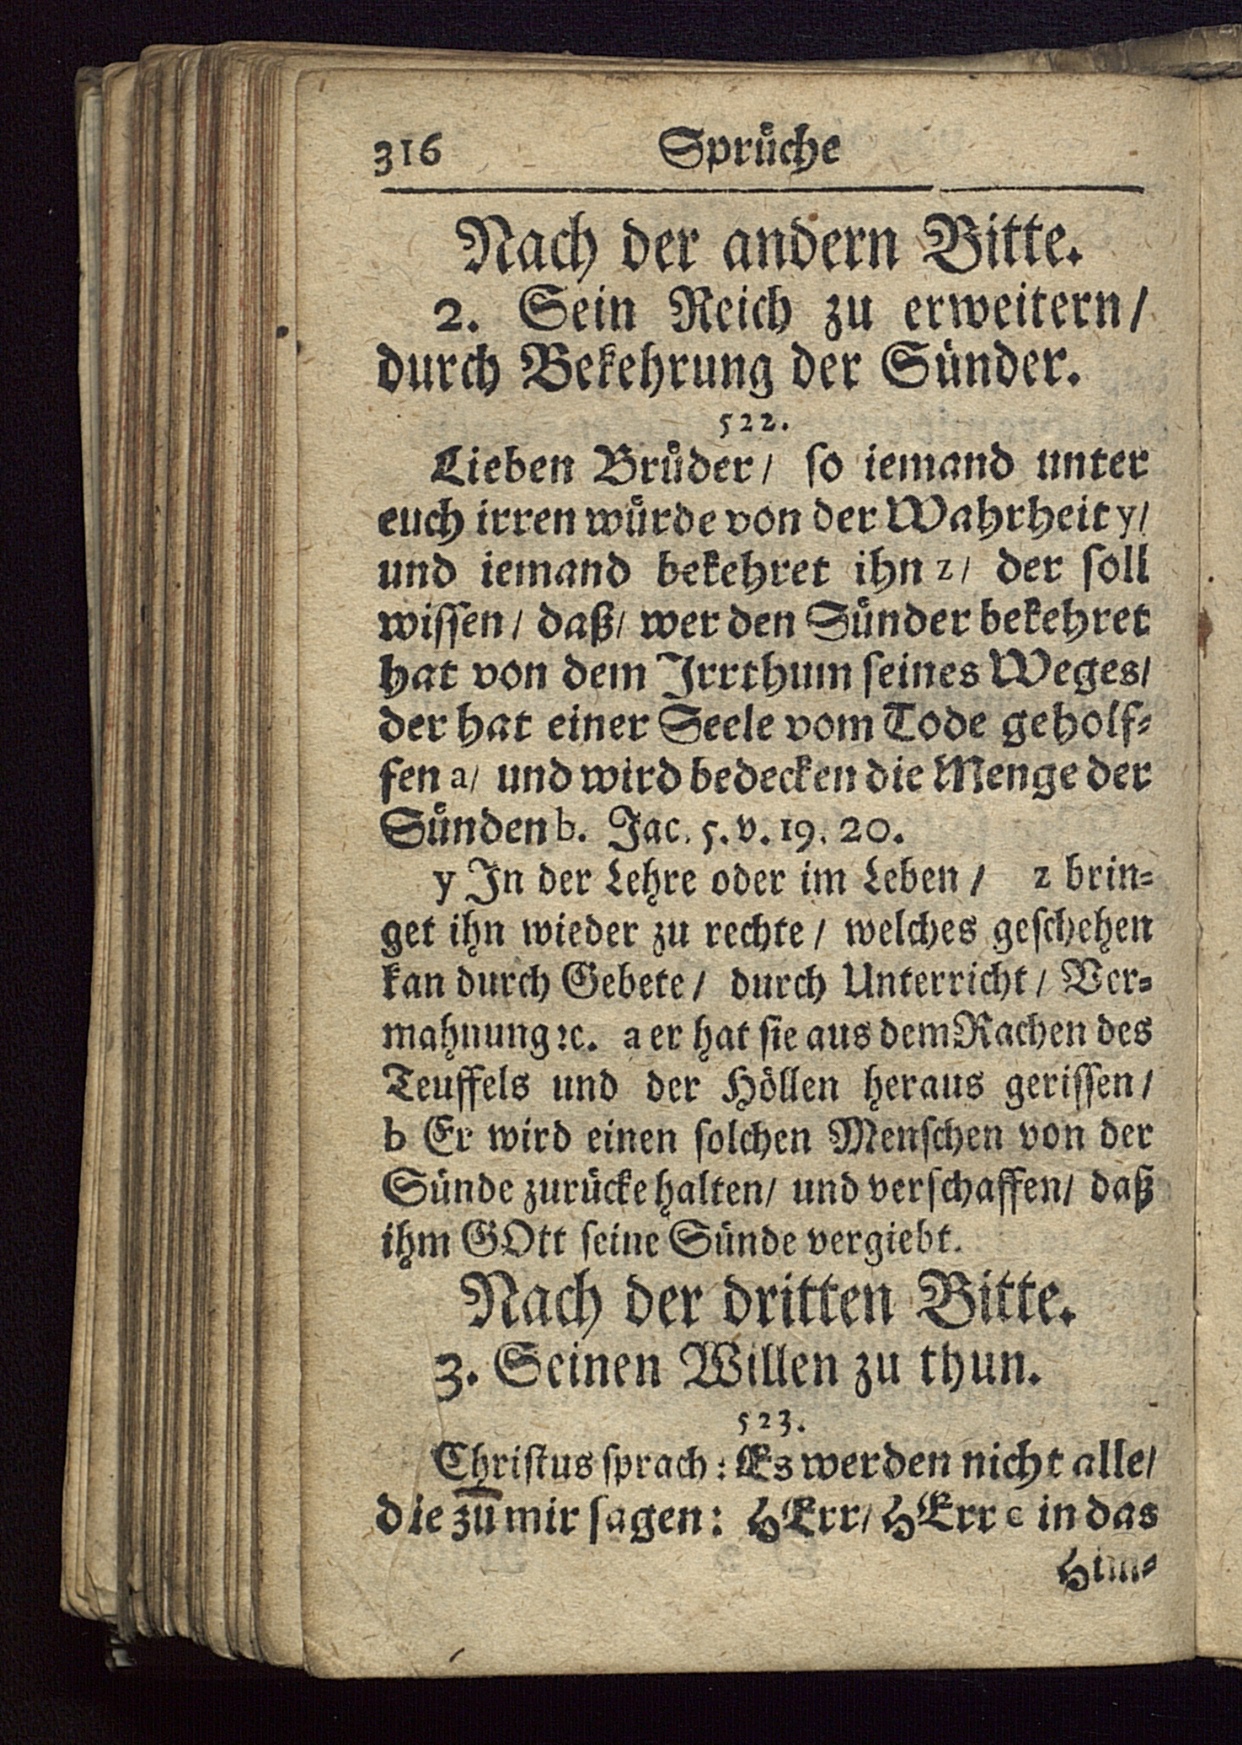 316 Sprüche
Nach der andern Bitte.
2. Sein Reich zu erweitern/
durch Bekehrung der Sünder.
522.
Lieben Brüder/ so iemand unter
euch irren würde von der Wahrheit y/
und iemand bekehret ihn z/ der soll
wissen/ daß/ wer den Sünder bekehret
hat von dem Irrthum seines Weges/
der hat einer Seele vom Tode geholf-
fen a/ und wird bedecken die Menge der
Sünden b. Jac. 5. v. 19. 20.
y In der Lehre oder im Leben/ z brin-
get ihn wieder zu rechte/ welches geschehen
kan durch Gebete/ durch Unterricht/ Ver-
mahnung ꝛc. a er hat sie aus dem Rachen des
Teuffels und der Höllen heraus gerissen/
b Er wird einen solchen Menschen von der
Sünde zurücke halten/ und verschaffen/ daß
ihm GOtt seine Sünde vergiebt.
Nach der dritten Bitte.
3. Seinen Willen zu thun.
523.
Christus sprach: Es werden nicht alle/
die zu mir sagen: HErr/ HErr c in das
Him-